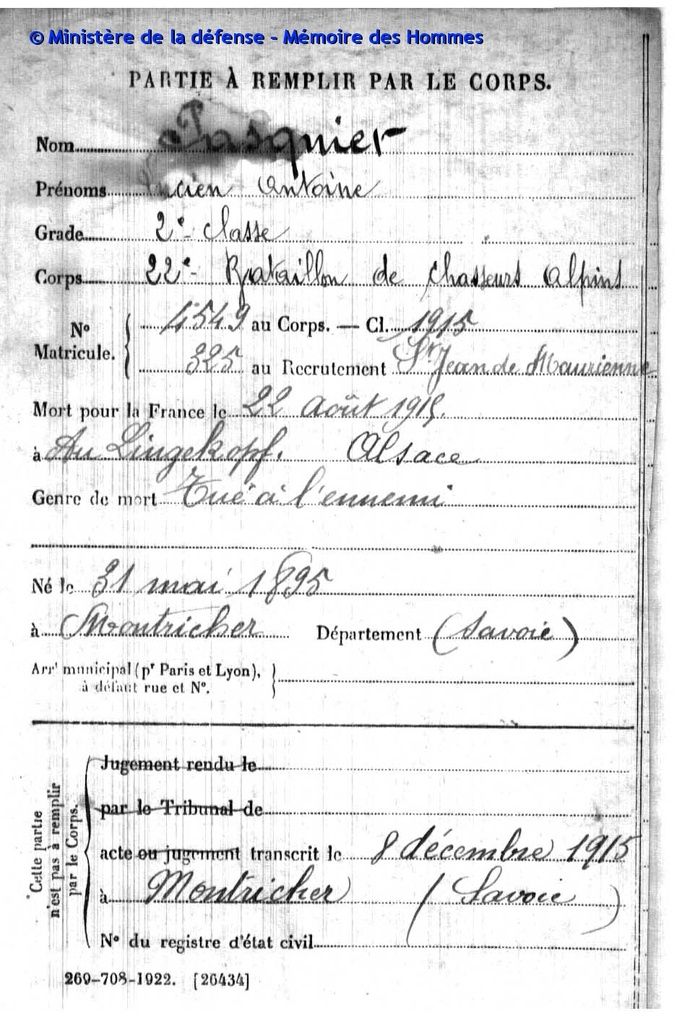 © Ministère de la défense - Mémoire des Hommes
PARTIE À REMPLIR PAR LE CORPS.
Nom Pasquier
Prénoms Lucien Antoine
Grade 2e classe
Corps 22e Bataillon de Chasseurs Alpins
N° Matricule. 4549 au Corps. — Cl. 1915
325 au Recrutement St Jean de Maurienne
Mort pour la France le 22 Août 1915.
à Au Lingekopf. Alsace
Genre de mort Tué à l'ennemi
Né le 31 mai 1895
à Montricher Département (Savoie)
Arrt municipal (pr Paris et Lyon),
à défaut rue et N°.
Cette partie n'est pas à remplir par le Corps.
Jugement rendu le
par le Tribunal de
acte ou jugement transcrit le 8 décembre 1915
à Montricher (Savoie)
N° du registre d'état civil
269-708-1922. [26434]